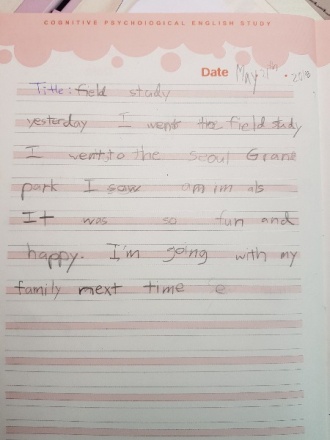 COGNITIVE PSYCHOLOGICAL ENGLISH STUDY
Date May. th. 2018
Title: field study
yesterday I went the field study
I went to the seoul Grand
park I saw animals
It was so fun and
happy. I'm going with my
family next time